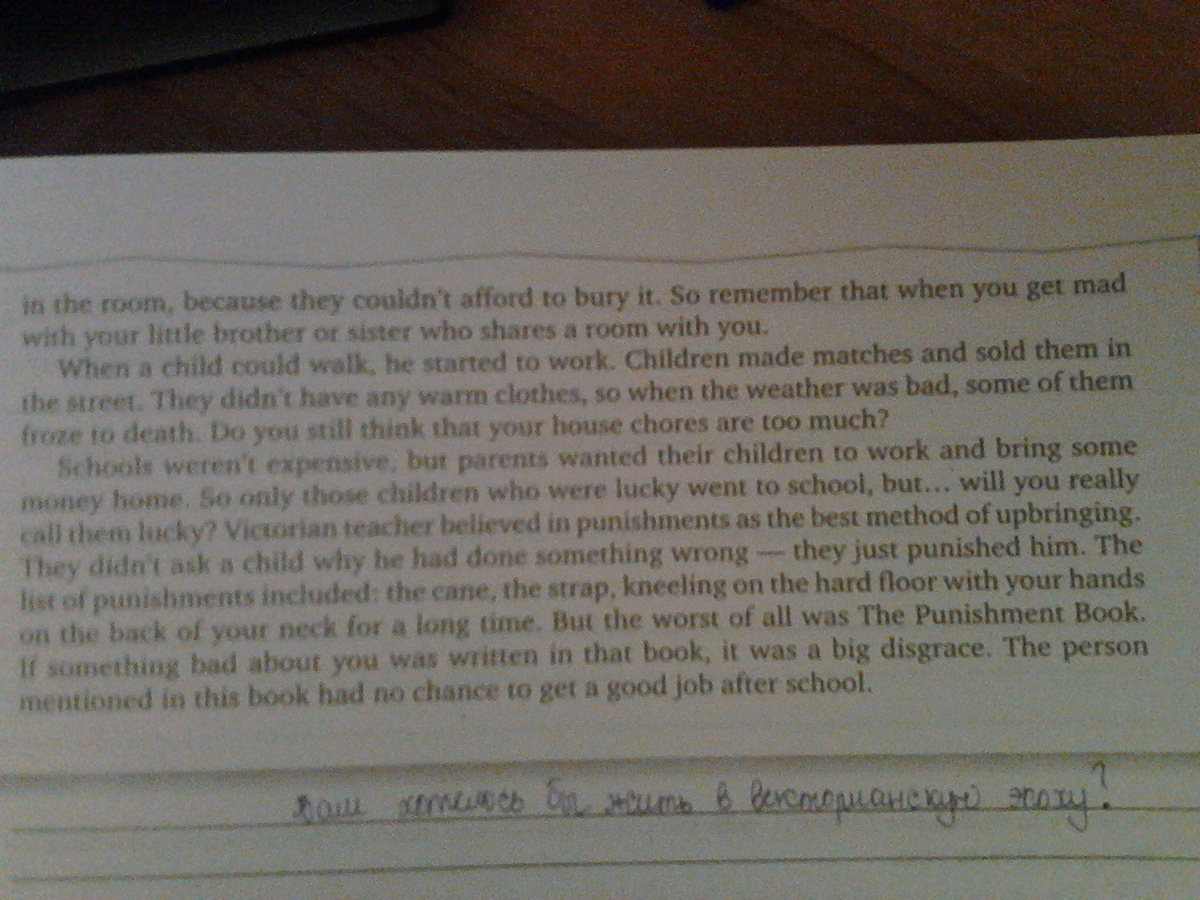 in the room, because they couldn't afford to bury it. So remember that when you get mad
with your little brother or sister who shares a room with you.
When a child could walk, he started to work. Children made matches and sold them in
the street. They didn't have any warm clothes, so when the weather was bad, some of them
froze to death. Do you still think that your house chores are too much?
Schools weren't expensive, but parents wanted their children to work and bring some
money home. So only those children who were lucky went to school, but... will you really
call them lucky? Victorian teacher believed in punishments as the best method of upbringing.
They didn't ask a child why he had done something wrong — they just punished him. The
list of punishments included: the cane, the strap, kneeling on the hard floor with your hands
on the back of your neck for a long time. But the worst of all was The Punishment Book.
If something bad about you was written in that book, it was a big disgrace. The person
mentioned in this book had no chance to get a good job after school.
Вам хотелось бы жить в викторианскую эпоху?